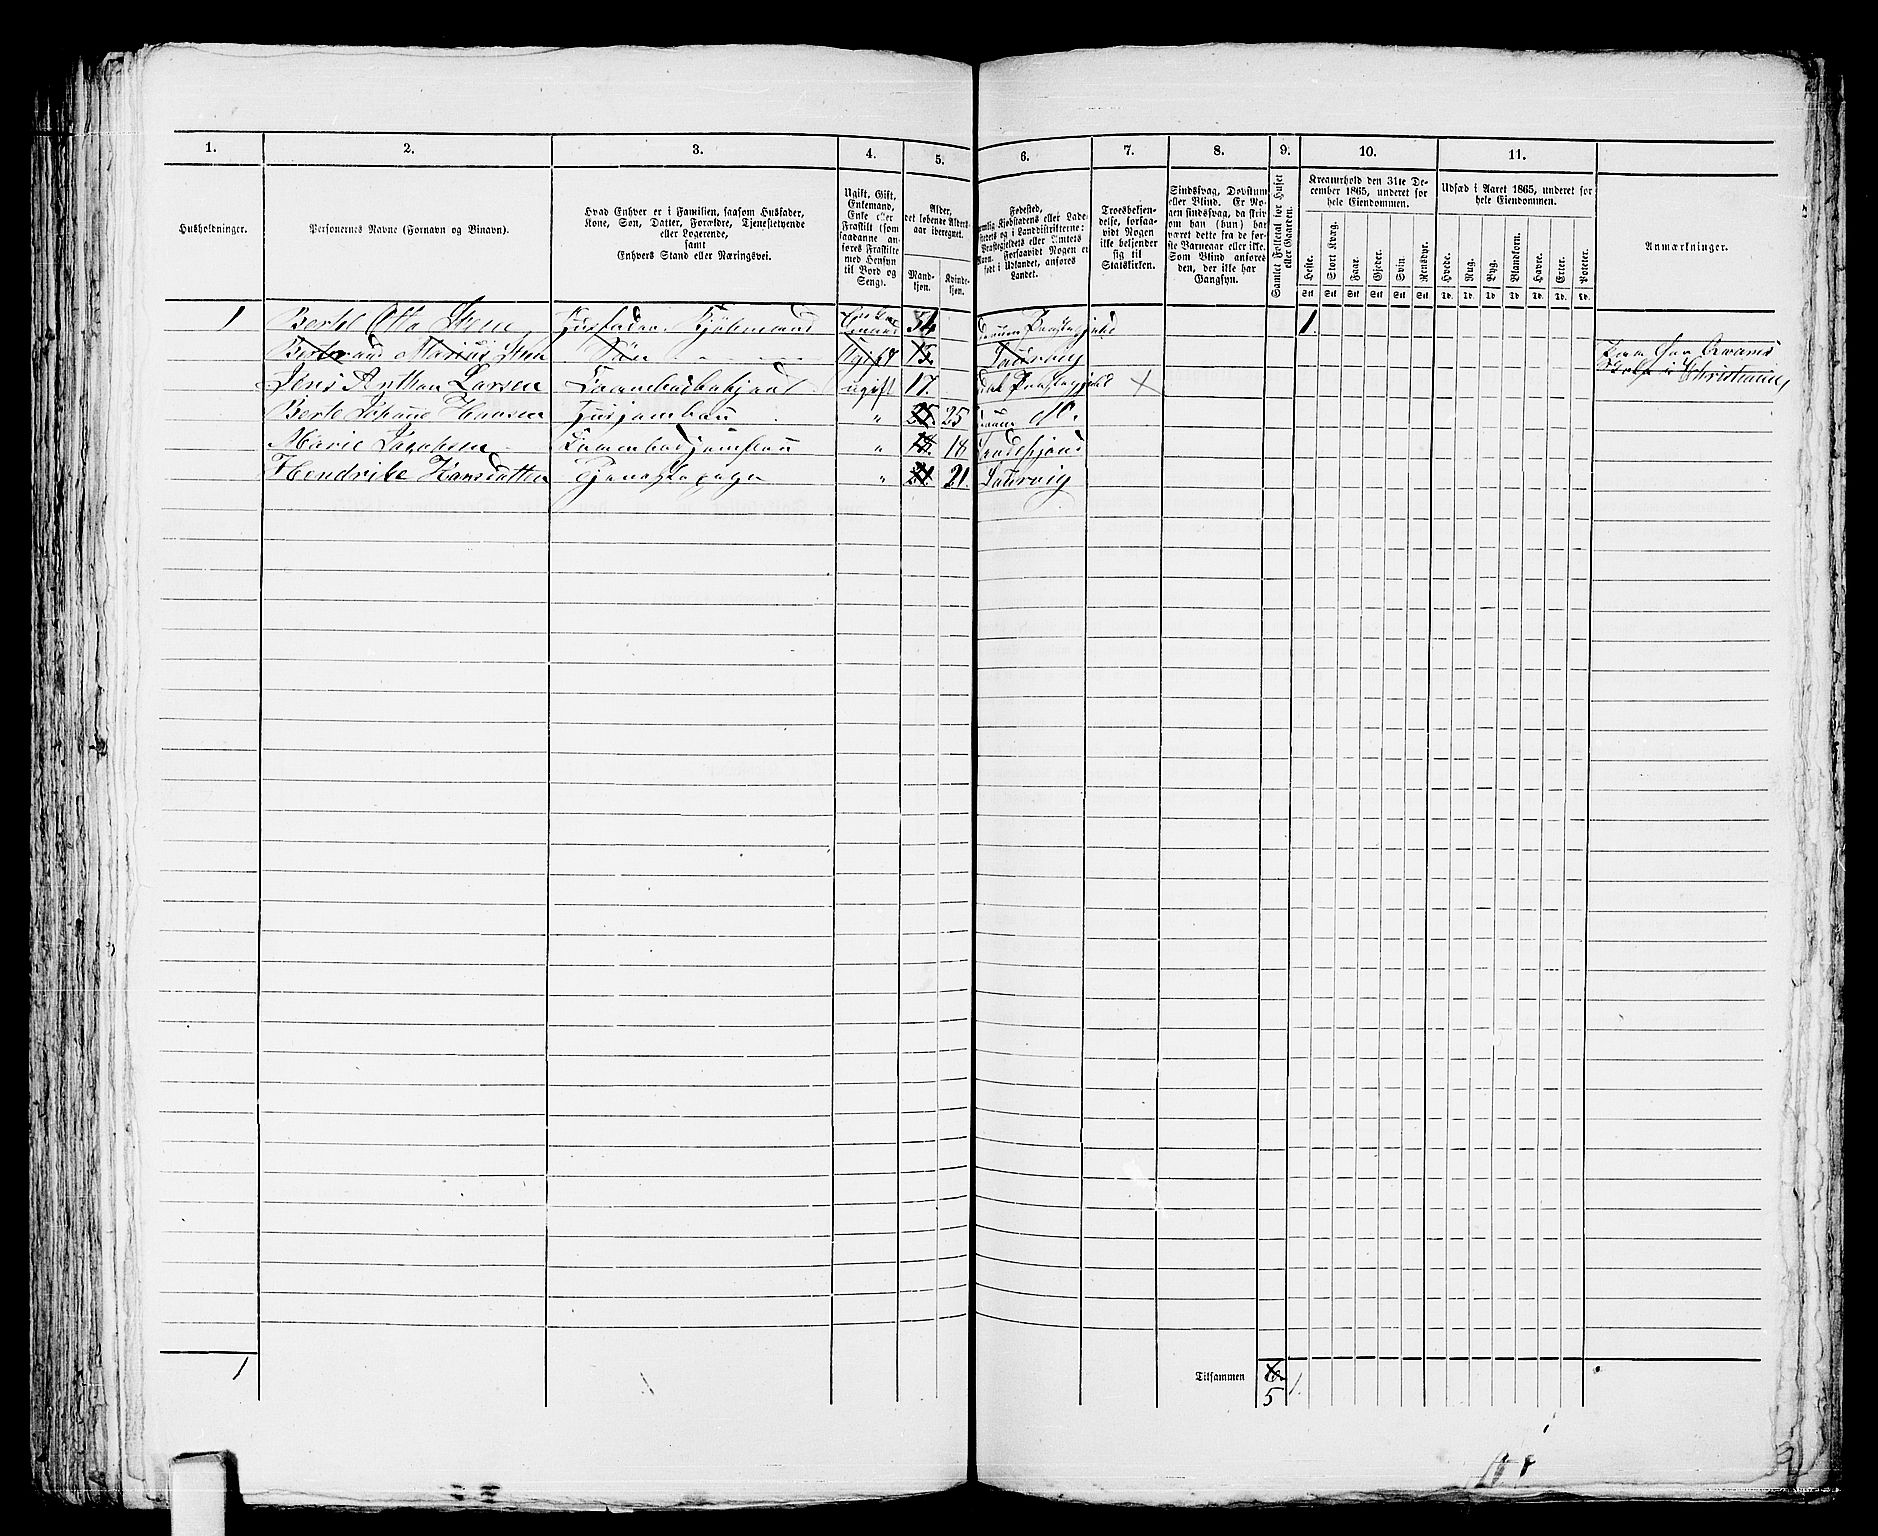 1. 2. 3. 4. 5. 6. 7. 8. 9. 10. 11.
Husholdninger.
Personernes Navne (Fornavn og Binavn).
Hvad Enhver er i Familien, saasom Husfader,
Kone, Søn, Datter, Forældre, Tjenestetyende
eller Logerende,
samt
Enhvers Stand eller Næringsvei.
Ugift, Gift,
Enkemand,
Enke eller
Fraskilt (som
saadanne an-
føres Fraskilte
med Hensyn
til Bord og
Seng).
Alder,
det løbende Alders-
aar iberegnet.
Mand-
kjøn.
Kvinde-
kjøn.
Fødested,
Kjøbstadens eller Lade-
stedets og i Landdistrikterne:
Præstegjeldets eller Amtets
Navn. Forsaavidt Nogen er
født i Udlandet, anføres
Landet.
Troesbekjen-
delse, forsaa-
vidt Nogen
ikke bekjender
sig til
Statskirken.
Sindssvag, Døvstum
eller Blind. Er No-
gen sindssvag, da skriv
om han (hun) har
været dette fra de før-
ste Barneaar eller ikke.
Som Blind anføres
den, der ikke har
Gangsyn.
Samlet Folketal for Huset
eller Gaarden.
Kreaturhold den 31te De-
cember 1865, underet for
hele Eiendommen.
Heste. Stort Kvæg. Faar. Gjeder. Svin. Rensdyr.
Stk Stk Stk Stk Stk Stk
Udsæd i Aaret 1865, underet for
hele Eiendommen.
Hvede. Rug. Byg. Blandkorn. Havre. Erter. Poteter.
Td. Td. Td. Td. Td. Td. Td.
Anmærkninger.
1 Bertel Otto Steen Husfader, Kjøbmand 54 1.
Bertrand Marius Steen Søn Ugift 13 Laurvig
Christiania,
Jens Anthon Larsen ugift 17. X
Berte Johanne Hansen " 25 25 do.
Marie Jacobsen " 18. 18
Hendrikke Hansdatter Tjenestepige " 21. 21. Laurvig
1 Tilsammen 6. 1.
5